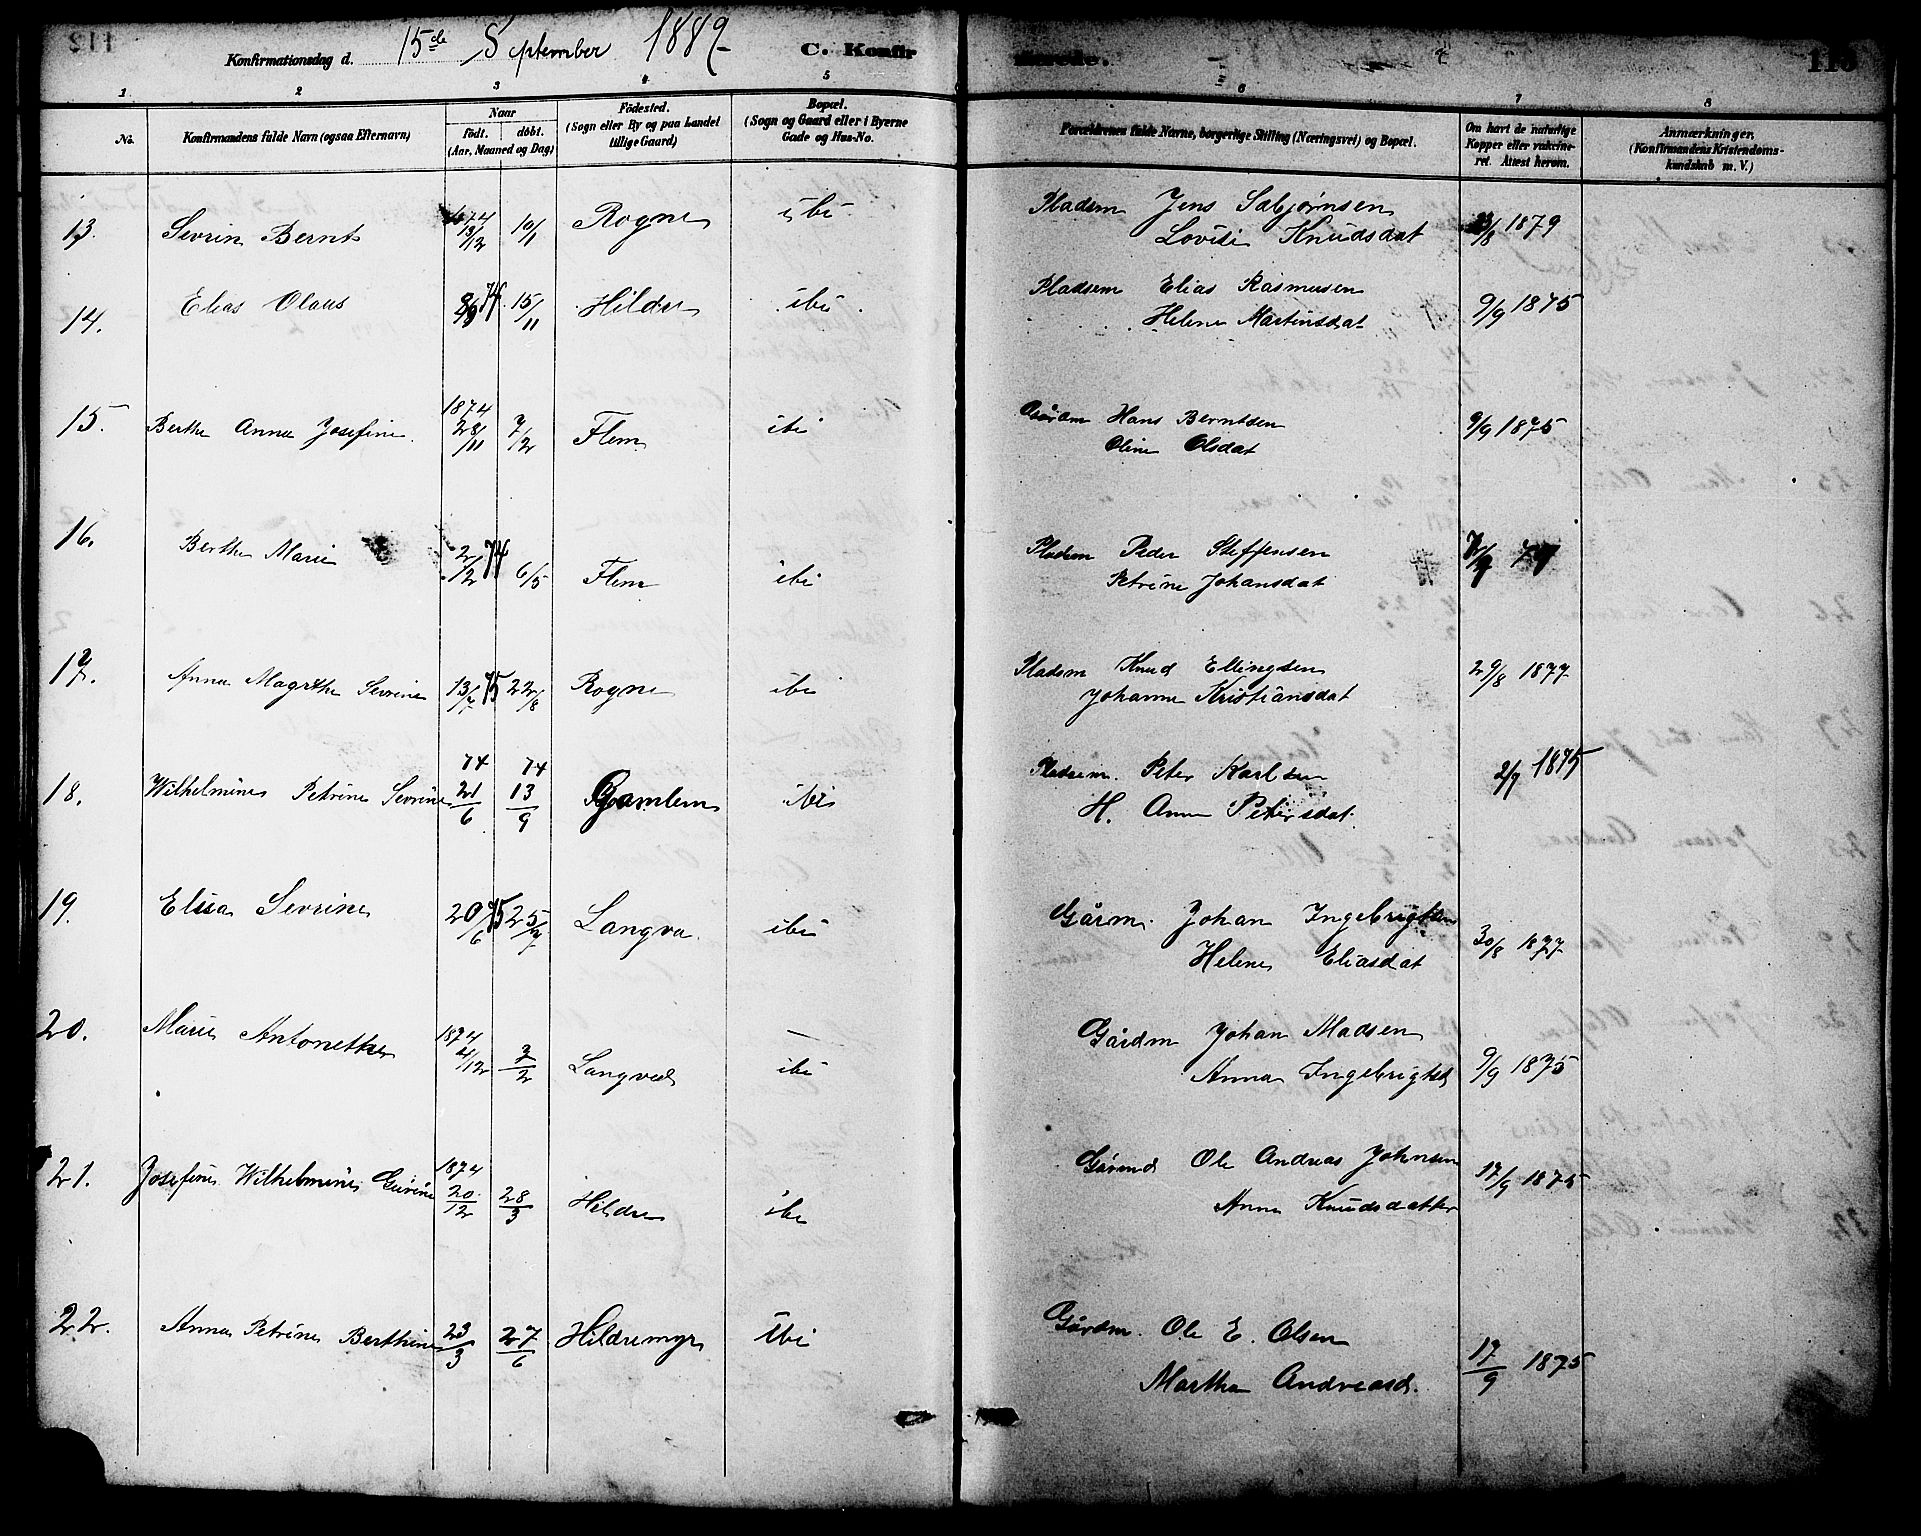 Konfirmationsdag d. 15de September 1889 C. Konfirmerede. 113
1 2 3 4 5 6 7 8
No. Konfirmandens fulde Navn (ogsaa Efternavn) Naar født. døbt. (Aar, Maaned og Dag) Fødested. (Sogn eller By og paa Landet tillige Gaard) Bopæl. (Sogn og Gaard eller i Byerne Gade og Hus-No. Forældrenes fulde Navne, borgerlige Stilling (Næringsvei) og Bopæl. Om havt de naturlige Kopper eller vakcineret. Attest herom. Anmærkninger. (Konfirmandens Kristendomskundskab m. V.)
13. Sevrin Bernt 1874 13/12 10/1 Rogne ibi Pladsm Jens Sæbjørnsen
Lovise Knudsdat /8 1879
14. Elias Olaus 74 15/11 Hildre ibi Pladsm Elias Rasmusen
Helene Martinsdat 9/9 1875
15. Berthe Anna Josefine 1874 28/11 7/2 Flem ibi Gårdm Hans Berntsen
Oline Olsdat 9/9 1875
16. Berthe Marie 2/12 74 6/5 Flem ibi Pladsm Peder Steffensen
Petrine Johansdat
17. Anna Magrthe Sevrine 13/7 75 22/8 Rogne ibi Pladsm Knud Ellingsen
Johanne Kristiansdat 29/8 1877
18. Wilhelmine Petrine Sevrine 74 21/6 74 13/9 Gamlem ibi Pladsm. Peter Karlsen
H. Anne Petersdat. 2/9 1875
19. Elisa Sevrine 20/6 75 25/7 Langva ibi Gårm. Johan Ingebrigtsen
Helene Eliasdat 30/8 1877
20. Marie Antonette 1874 4/12 7/2 Langved ibi Gårdm Johan Madsen
Anna Ingebrigtsd 9/9 1875
21. Josefine Wilhelmine Gurine 1874 20/12 28/3 Hildre ibi Gårmd Ole Andreas Johnsen
Anne Knudsdatter 17/9 1875
22. Anna Petrine Berthine 23/3 27/6 Hildremyr ibi Gårdm. Ole E. Olsen
Martha Andreasd. 17/9 1875